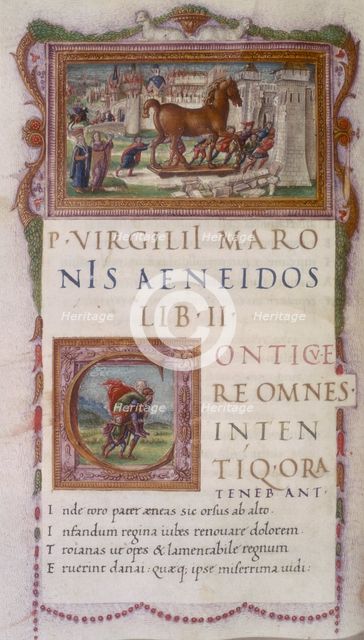 P · VIRGILII MARO
NIS AENEIDOS
LIB · II ·
CONTICVE
RE OMNES ·
INTEN
TIQ · ORA
TENEBANT ·
Inde toro pater æneas sic orsus ab alto.
Infandum regina iubes renouare dolorem.
Troianas ut opes & lamentabile regnum
Eruerint danai: quæq; ipse miserrima uidi:
Heritage
Heritage
Heritage
Heritage
Heritage
Heritage
Heritage
Heritage